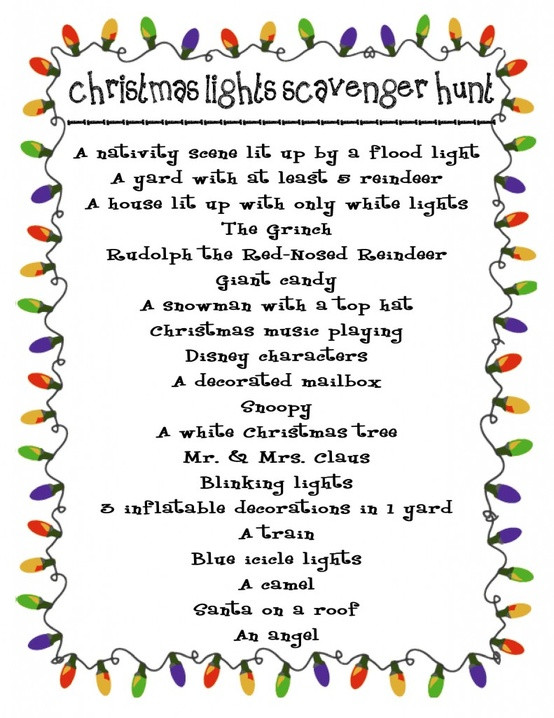 christmas lights scavenger hunt
A nativity scene lit up by a flood light
A yard with at least 5 reindeer
A house lit up with only white lights
The Grinch
Rudolph the Red-Nosed Reindeer
Giant candy
A snowman with a top hat
Christmas music playing
Disney characters
A decorated mailbox
Snoopy
A white Christmas tree
Mr. & Mrs. Claus
Blinking lights
3 inflatable decorations in 1 yard
A train
Blue icicle lights
A camel
Santa on a roof
An angel